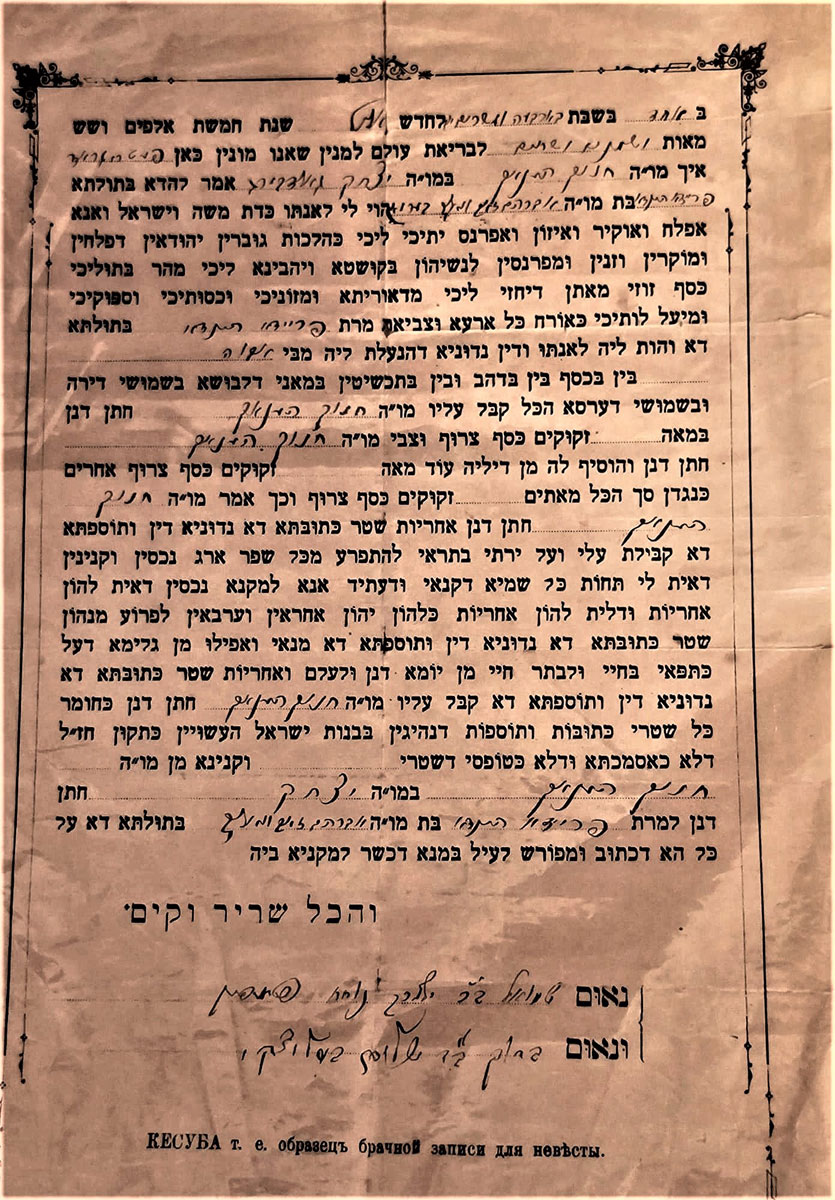 ב אחד בשבת בארבעה ועשרים לחדש שנת חמשת אלפים ושש
מאות ושמנים לבריאת עולם למנין שאנו מונין כאן
איך מו״ה חנוך העניך במו״ה יצחק אמר להדא בתולתא
פריידא הינדא בת מו״ה הוי לי לאנתו כדת משה וישראל ואנא
אפלח ואוקיר ואיזון ואפרנס יתיכי ליכי כהלכות גוברין יהודאין דפלחין
ומוקרין וזנין ומפרנסין לנשיהון בקושטא ויהבינא ליכי מהר בתוליכי
כסף זוזי מאתן דיחזי ליכי מדאוריתא ומזוניכי וכסותיכי וספוקיכי
ומיעל לותיכי כאורח כל ארעא וצביאת מרת פריידא הינדא בתולתא
דא והות ליה לאנתו ודין נדוניא דהנעלת ליה מבי אבוה
בין בכסף בין בדהב ובין בתכשיטין במאני דלבושא בשמושי דירה
ובשמושי דערסא הכל קבל עליו מו״ה חנוך העניך חתן דנן
במאה זקוקים כסף צרוף וצבי מו״ה חנוך העניך
חתן דנן והוסיף לה מן דיליה עוד מאה זקוקים כסף צרוף אחרים
כנגדן סך הכל מאתים זקוקים כסף צרוף וכך אמר מו״ה חנוך
העניך חתן דנן אחריות שטר כתובתא דא נדוניא דין ותוספתא
דא קבילת עלי ועל ירתי בתראי להתפרע מכל שפר ארג נכסין וקנינין
דאית לי תחות כל שמיא דקנאי ודעתיד אנא למקנא נכסין דאית להון
אחריות ודלית להון אחריות כלהון יהון אחראין וערבאין לפרוע מנהון
שטר כתובתא דא נדוניא דין ותוספתא דא מנאי ואפילו מן גלימא דעל
כתפאי בחיי ולבתר חיי מן יומא דנן ולעלם ואחריות שטר כתובתא דא
נדוניא דין ותוספתא דא קבל עליו מו״ה חנוך העניך חתן דנן כחומר
כל שטרי כתובות ותוספות דנהיגין בבנות ישראל העשויין כתקון חז״ל
דלא כאסמכתא ודלא כטופסי דשטרי וקנינא מן מו״ה
חנוך העניך במו״ה יצחק חתן
דנן למרת פריידא הינדא בת מו״ה בתולתא דא על
כל הא דכתוב ומפורש לעיל במנא דכשר למקניא ביה
והכל שריר וקים.
נאום שמואל ב״ר
ונאום ברוך ב״ר
КЕСУБА т. е. образецъ брачной записи для невѣсты.